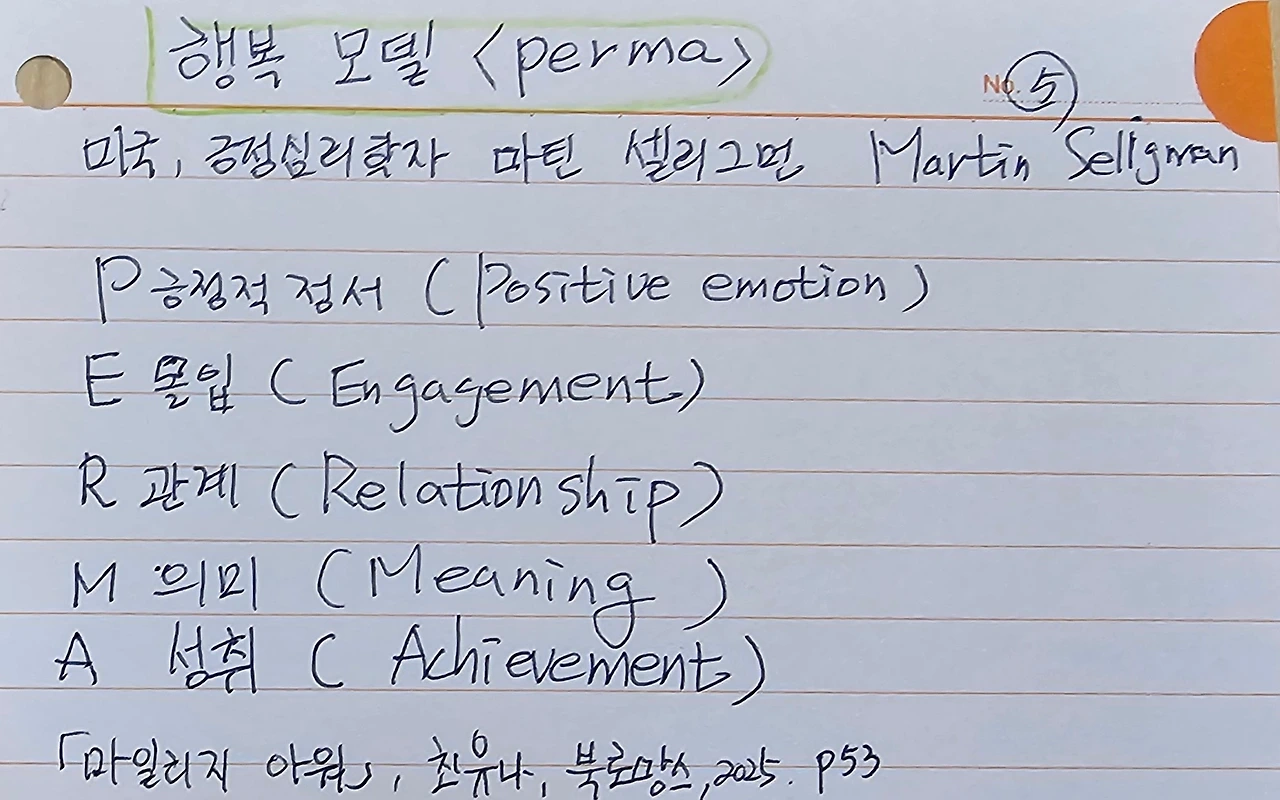 행복 모델 <perma>
No. 5
미국, 긍정심리학자 마틴 셀리그먼 Martin Seligman
P 긍정적 정서 (Positive emotion)
E 몰입 (Engagement)
R 관계 (Relationship)
M 의미 (Meaning)
A 성취 (Achievement)
「마일리지 아워」, 최유나, 북로망스, 2025. p53